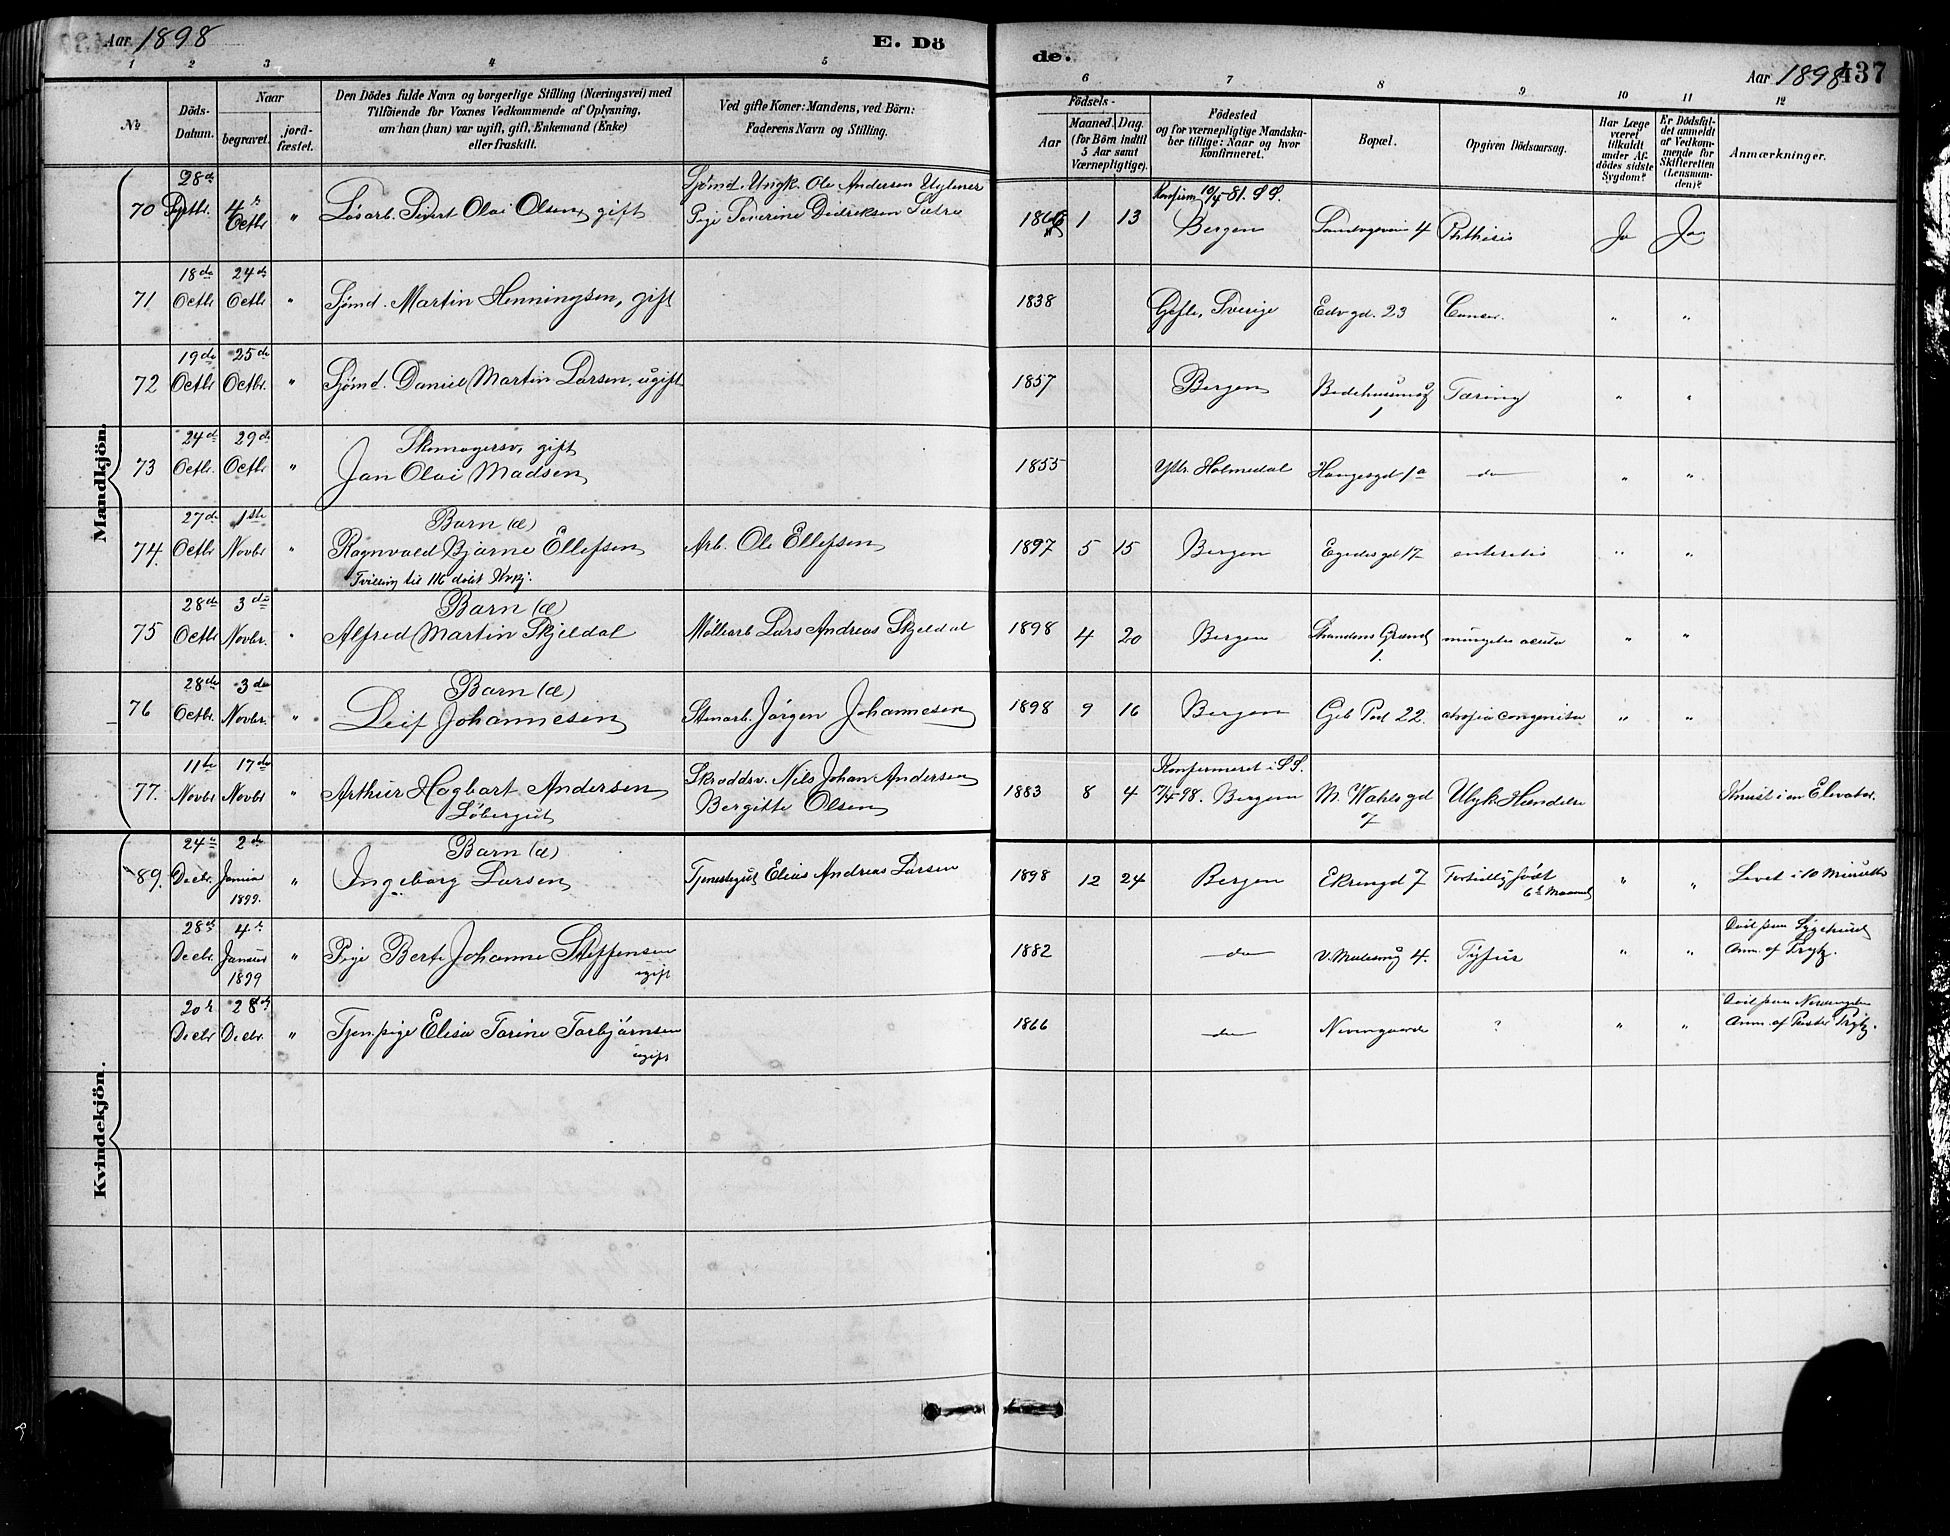 Aar 1898
E. Dö
de.
Aar 1898 437
1 2 3 4 5 6 7 8 9 10 11 12
№
Döds-Datum.
Naar
begravet.
jord-fæstet.
Den Dödes fulde Navn og borgerlige Stilling (Næringsvei) med
Tilföiende for Voxnes Vedkommende af Oplysning,
om han (hun) var ugift, gift, Enkemand (Enke)
eller fraskilt.
Ved gifte Koner: Mandens, ved Börn:
Faderens Navn og Stilling.
Födsels-
Aar
Maaned. Dag.
(for Börn indtil
5 Aar samt
Værnepligtige).
Födested
og for værnepligtige Mandska-
ber tillige: Naar og hvor
konfirmeret.
Bopæl.
Opgiven Dödsaarsag.
Har Læge
været
tilkaldt
under Af-
dödes sidste
Sygdom?
Er Dödsfal-
det anmeldt
af Vedkom-
mende for
Skifteretten
(Lensman-
den)?
Anmærkninger.
Mandkjön.
70 28de Septbr. 4de Octbr " Løsarb. Sivert Olai Olsen, gift Sjömd. Ungk. Ole Andersen
Pige Severine Dedriksen Sætre 1866 1 13 Konfirm 10/4-81. S.S.
Bergen Sandvigsveien 4 Phthisis Ja Ja
71 18de Octbr 24de Octbr " Sjömd. Martin Henningsen, gift 1838 Gefle, Sverige Edv gd. 23 Cancer. " "
72 19de Octbr 25de Octbr. " Sjömd. Daniel Martin Larsen, ugift 1857 Bergen Bedehussmug 1 Tæring " "
73 24de Octbr. 29de Octbr " Skomagersv, gift
Jan Olai Madsen 1855 Ytr. Holmedal Haugesgd 1a do " "
74. 27de Octbr 1ste Novbr " Barn (æ)
Ragnvald Bjarne Ellefsen
Tvilling til 116 døbt Kvkj. Arb. Ole Ellefsen 1897 5 15 Bergen Egedesgd 17 enteritis " "
75 28de Octbr 3die Novbr. " Barn (æ)
Alfred Martin Skjeldal Møllearb Lars Andreas Skjeldal 1898 4 20 Bergen Strandens Grund 1. acuta " "
76 28de Octbr. 3die Novbr. " Barn (æ)
Leif Johannesen Stenarb. Jörgen Johannesen 1898 9 16 Bergen 22. atrofia congenita " "
77. 11te Novbr 17de Novbr " Arthur Hagbart Andersen
Løbergut Skræddsv. Nils Johan Andersen
Bergitte Olsen 1883 8 4 Konfirmeret i S.S.
17/4 98. Bergen M. Wahls gd 7 Ulyk. Hændelse Knust i en Elevator.
Kvindekjön.
89. 24de Decbr. 2de Januar 1899. " Barn (æ)
Ingeborg Larsen Tjenestegut Elias Andreas Larsen 1898 12 24 Bergen Ekrengd 7 Fortidlig födt
6te Maaned " " Levet i 10 Minutter
28de Decbr 4de Januar 1899 " Pige Berte Johanne Steffensen
ugift 1882 do V. Mulesmug 4. Tyfus " " Död paa Sygehuset
Anm. af Prytz.
20de Decbr 28de Decbr. " Tjen. pige Elisa Torine Torbjörnsen
ugift 1866 do Nevengaarde ? " " Död paa
Anm. af Præsten Prytz.